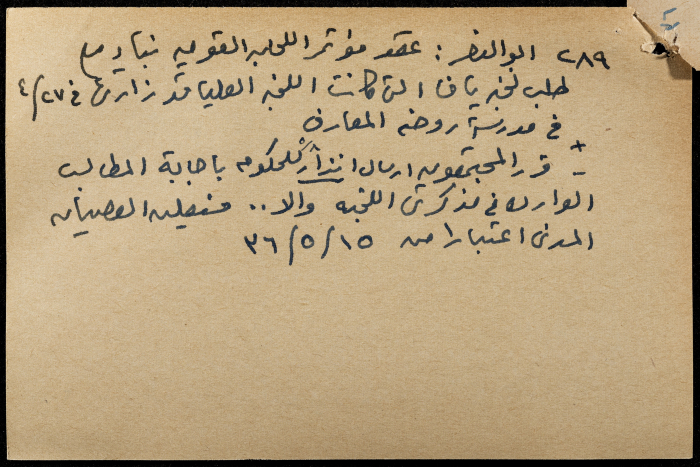 ٢٨٩ ابو النصر : عقد مؤتمر اللجان القومية بناء على
طلب لجنة يافا التي كانت اللجنة العليا قد زارتها في ٢٧/٤
في مدرسة روضة المعارف
+ قرر المجتمعون ارسال انذار للحكومة باجابة المطالب
الواردة في مذكرتي اللجنة والا .. العصيان
المدني اعتبارا من ٣٦/٥/١٥